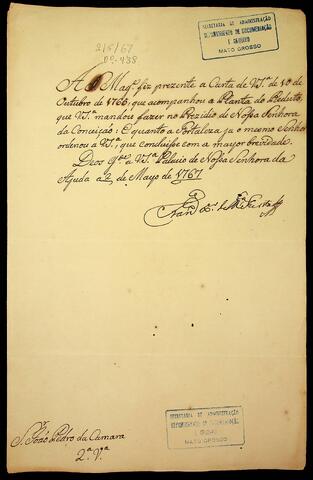 SECRETARIA DE ADMINISTRAÇÃO
DEPARTAMENTO DE DOCUMENTAÇÃO
E ARQUIVO
MATO GROSSO
2/5/67
nº 438
A S. Magᵉ. fiz prezente a Carta de V.Sª. de 10 de
Outubro de 1766, que acompanhou a Planta do Reduto,
que V.Sª. mandou fazer no Presidio de Nossa Senhora
da Conceição: E quanto a Fortaleza ja o mesmo Senhor
ordenou a V.Sª, que concluisse com a mayor brevidade.
Deos gᵈᵉ a V.Sª. Palacio de Nossa Senhora da
Ajuda a 2 de Mayo de 1767
Fran
SECRETARIA DE ADMINISTRAÇÃO
DEPARTAMENTO DE DOCUMENTAÇÃO
E ARQUIVO
MATO GROSSO
Sʳ. João Pedro da Camara
2ª. Vª